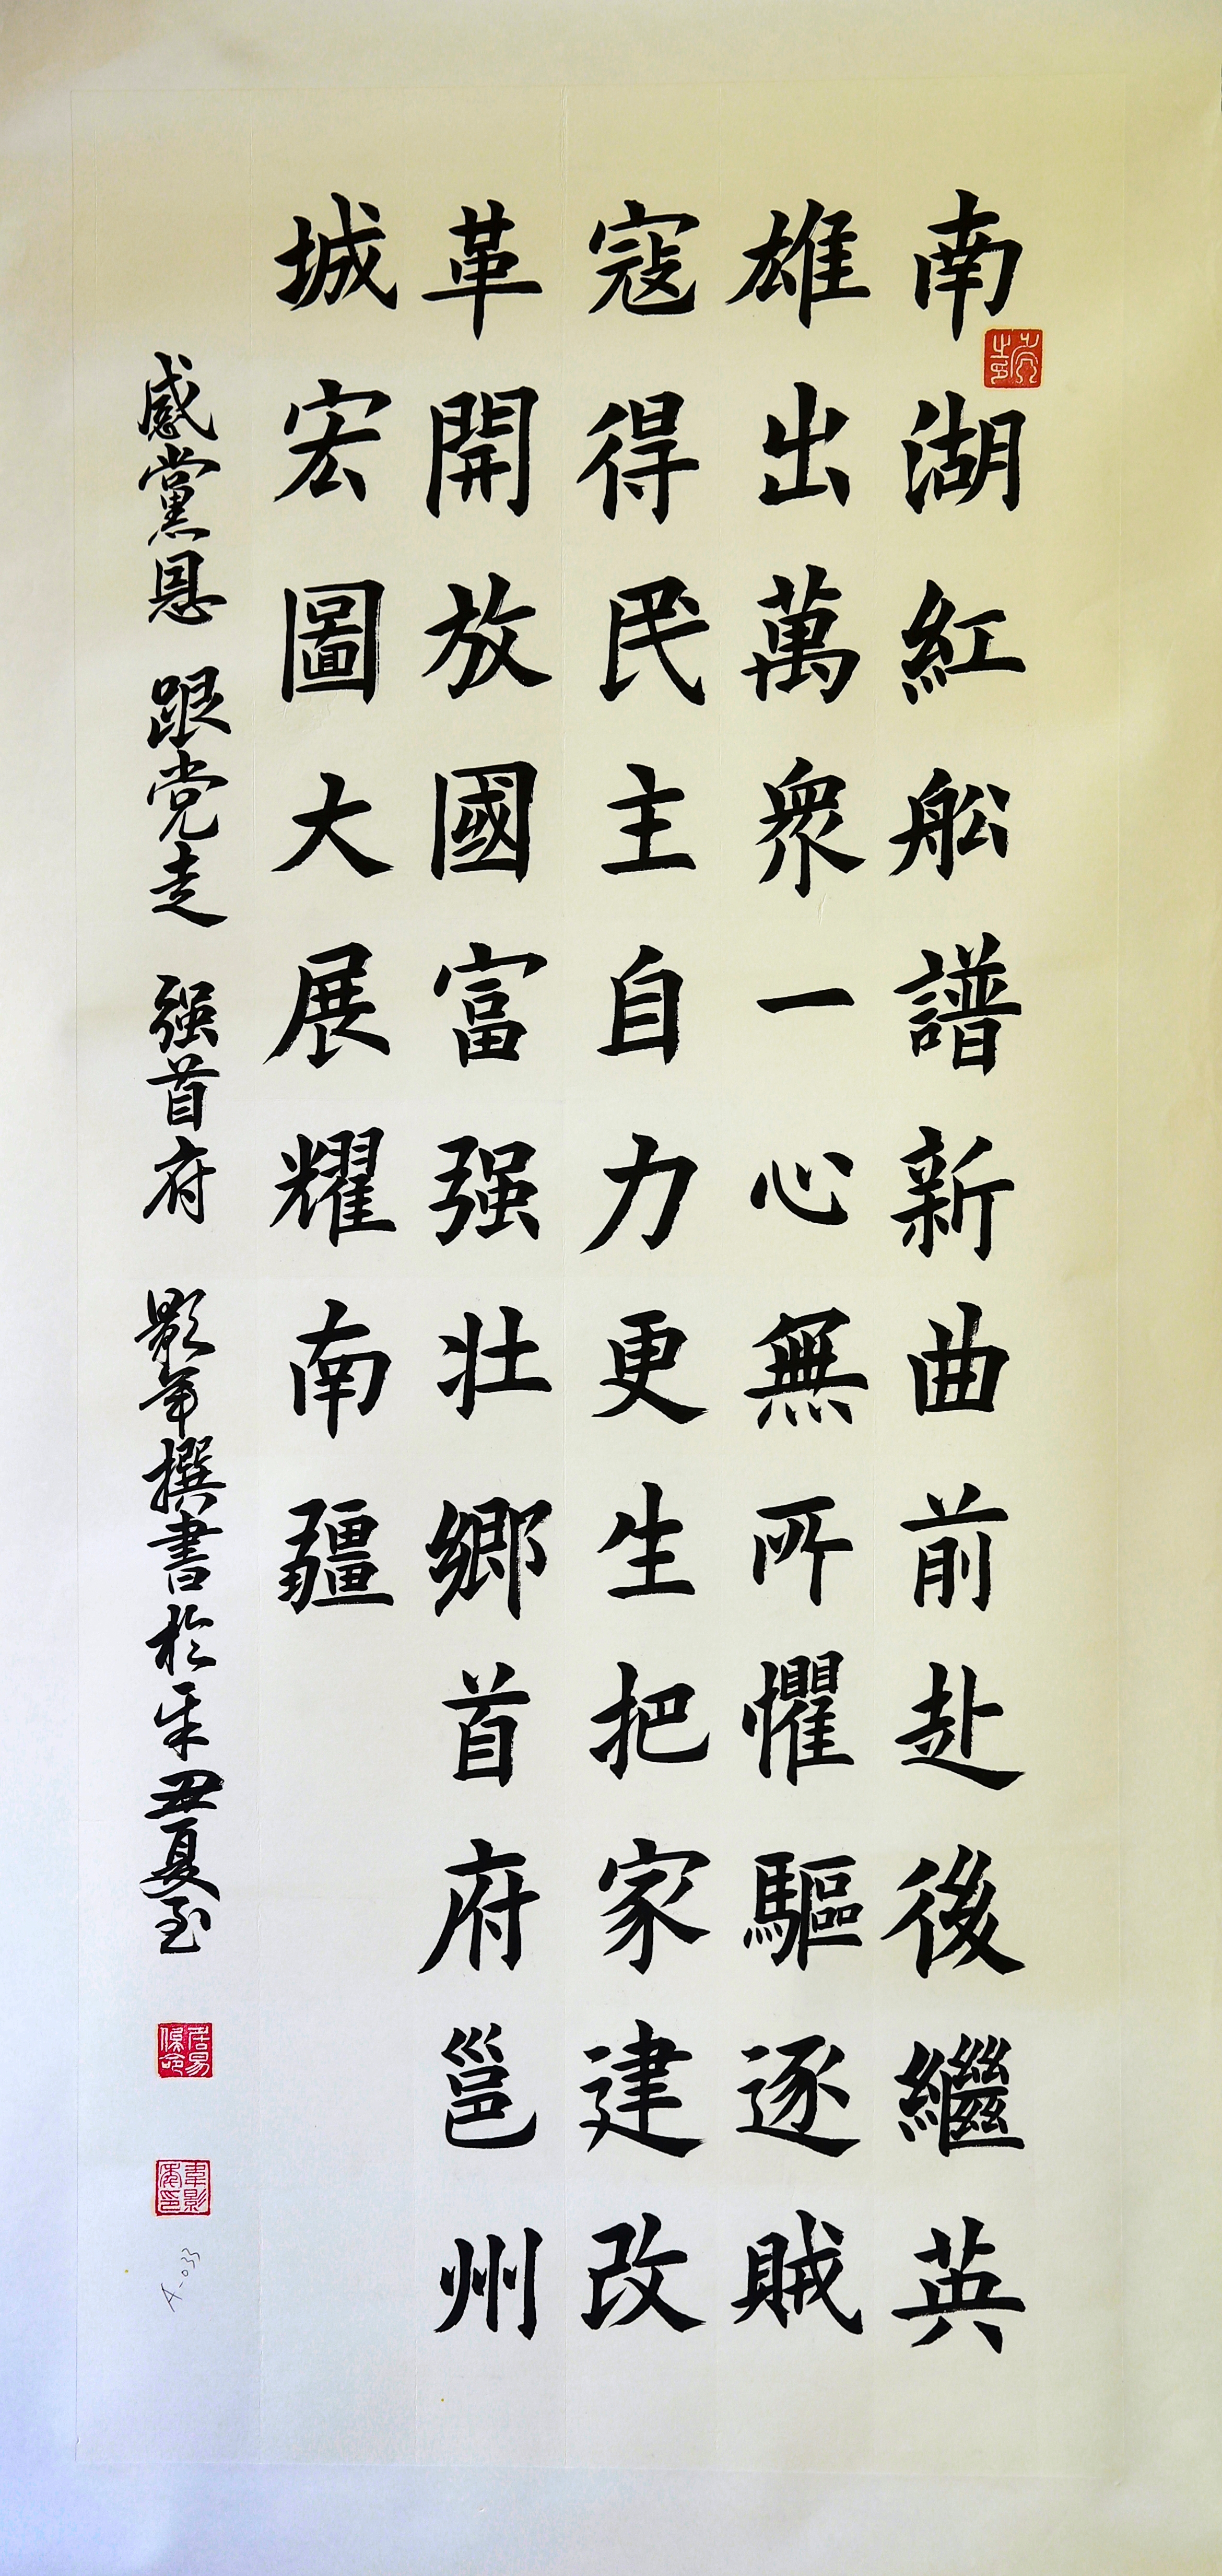 南湖紅舩譜新曲前赴後繼英
雄出萬衆一心無所懼驅逐賊
寇得民主自力更生把家建改
革開放國富强壯鄉首府邕州
城宏圖大展耀南疆
感黨恩 跟党走 强首府 影年撰書於辛丑夏至
居易
保命
A-033